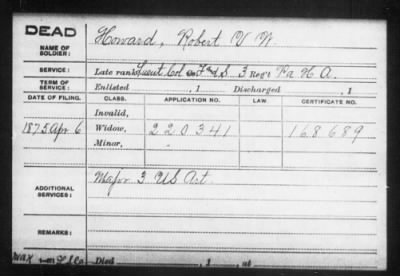 DEAD
NAME OF SOLDIER: Howard, Robert V W.
SERVICE: Late rank Lieut Col F & S. 3 Reg't Pa H.A.
TERM OF SERVICE: Enlisted , 1 Discharged , 1
DATE OF FILING. CLASS. APPLICATION NO. LAW. CERTIFICATE NO.
Invalid,
1875 Apr 6 Widow, 220341 168689
Minor,
ADDITIONAL SERVICES: Major 3 US Art.
REMARKS:
Died , 1 , at